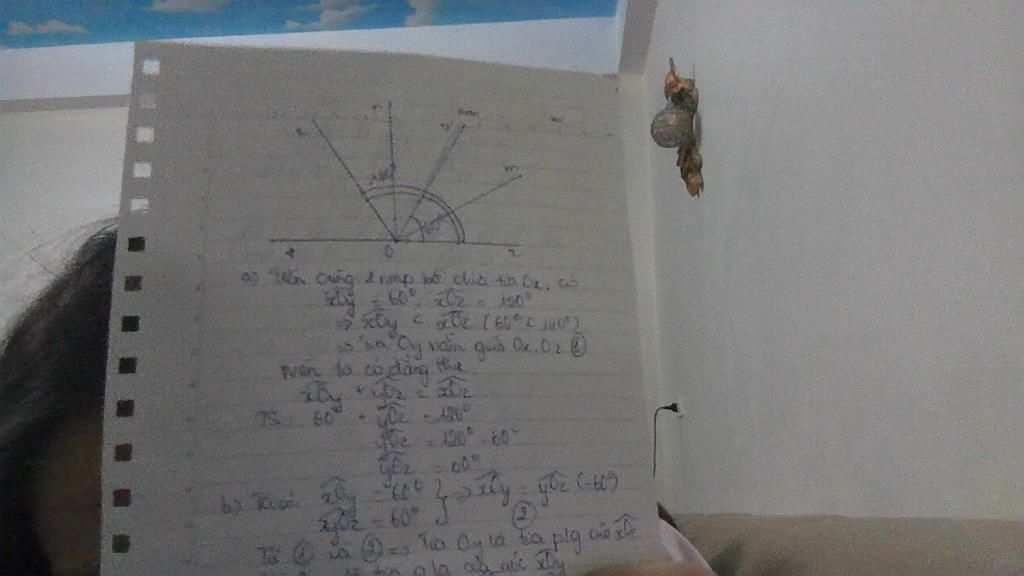 z n y m
120° 60°
t O x
a) Trên cùng 1 nmp bờ chứa tia Ox, có
xOy = 60°, xOz = 120°
⇒ xOy < xOz (60° < 120°)
⇒ tia Oy nằm giữa Ox, Oz ①
nên ta có đẳng thức
xOy + yOz = xOz
TS 60° + yOz = 120°
yOz = 120° - 60°
yOz = 60°
b) Ta có xOy = 60° } ⇒ xOy = yOz (=60°)
yOz = 60° ②
Từ ① và ② ⇒ Tia Oy là tia plg của xOz
tia plg của góc xOy